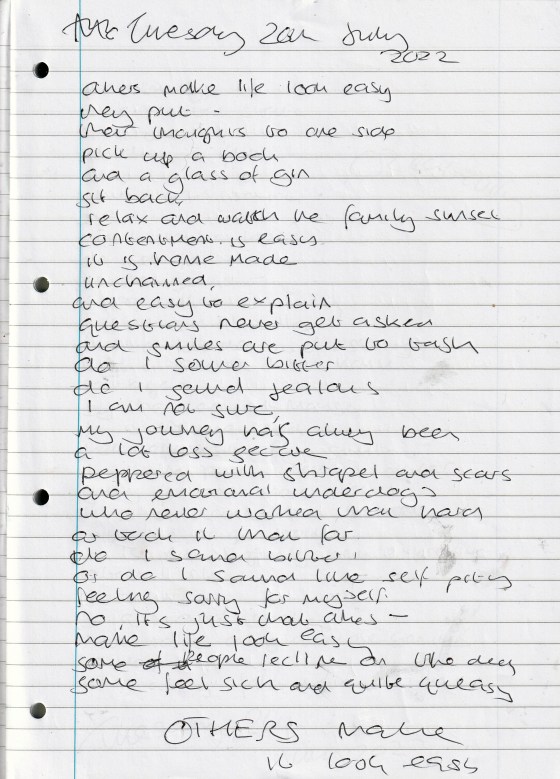 Tuesday 20th July
2022
others make life look easy
they put -
their thoughts to one side
pick up a book
and a glass of gin
sit back
relax and watch the family sunset
contentment is easy
it is home made
unchained,
and easy to explain
questions never get asked
and smiles are put to task
do I sound bitter
do I sound jealous
I am not sure,
my journey has alway been
a lot less
peppered with shrapel and scars
and emotional underdogs
who never worked that hard
or took it that far
do I sound bitter,
or do I sound like self pity
feeling sorry for myself.
no, its just that others -
make life look easy
some people recline on the deck
some feel sick and quite queasy
OTHERS make
it look easy